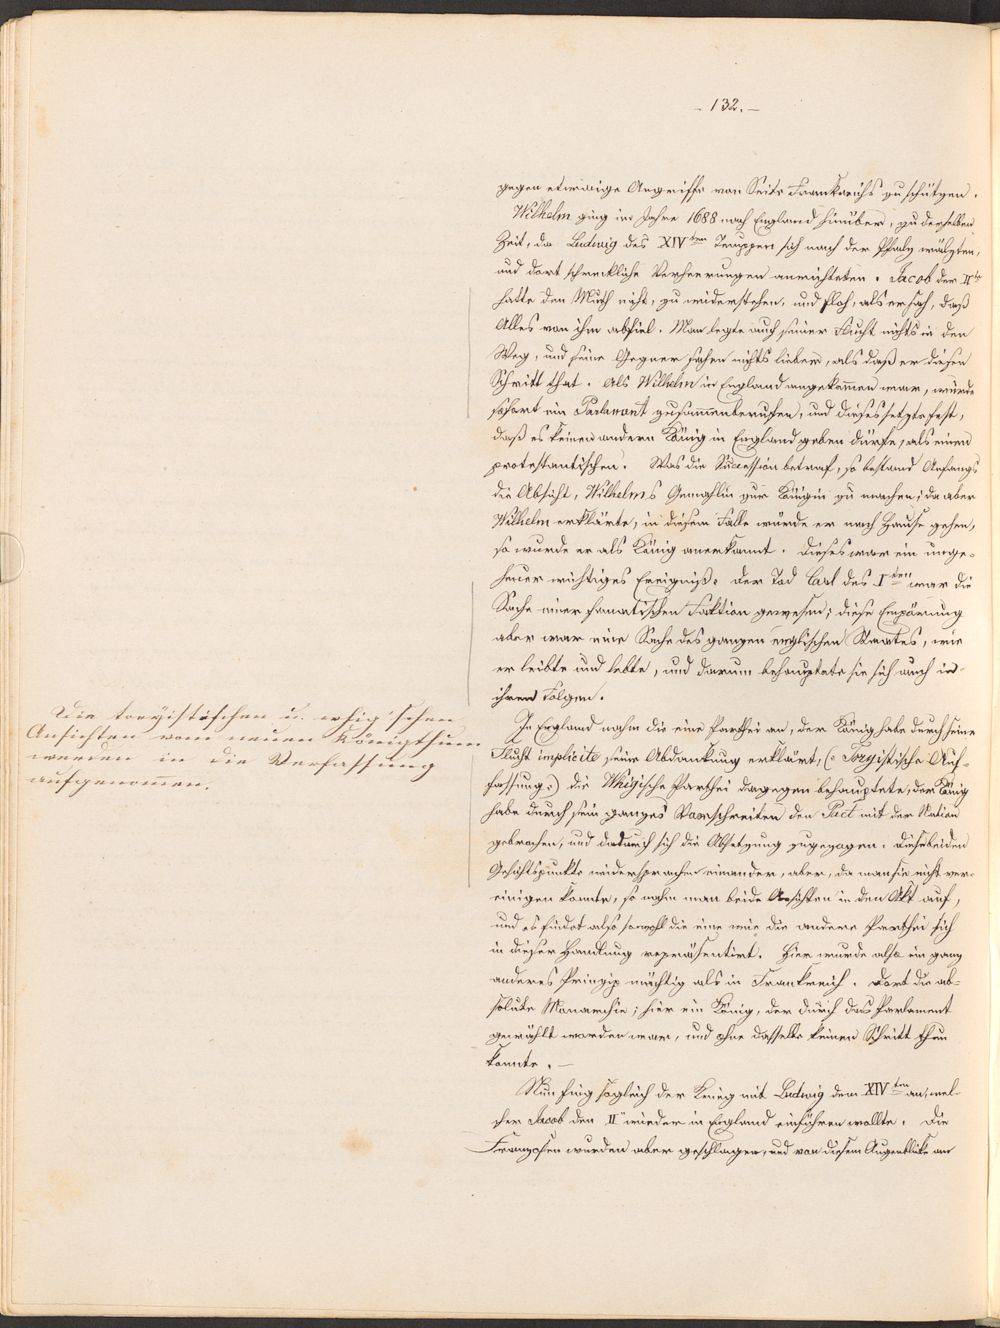 - 132. -
gegen etwaige Angriffe von Seite Frankreichs zu schützen.
Wilhelm ging im Jahre 1688 nach England hinüber, zu derselben
Zeit, da Ludwig des XIVten Truppen sich nach der Pfalz wälzten,
und dort schreckliche Verheerungen anrichteten. Jacob der IIte
hatte den Muth nicht, zu widerstehen, und floh, als er sah, daß
Alles von ihm abfiel. Man legte auch seiner Flucht nichts in den
Weg, und seine Gegner sahen nichts lieber, als daß er diesen
Schritt that. Als Wilhelm in England angekommen war, wurde
sofort ein Parlament zusammenberufen, und dieses setzte fest,
daß es keinen andern König in England geben dürfe, als einen
protestantischen. Was die Succession betraf, so bestand Anfangs
die Absicht, Wilhelms Gemahlin zur Königin zu machen; da aber
Wilhelm erklärte, in diesem Falle würde er nach Hause gehen,
so wurde er als König anerkannt. Dieses war ein unge-
heuer wichtiges Ereigniß. Der Tod Carl des Iten war die
Sache einer fanatischen Faktion gewesen; diese Empörung
aber war eine Sache des ganzen englischen Staates, wie
er leibte und lebte, und darum behauptete sie sich auch in
ihren Folgen.
In England nahm die eine Parthei an, der König habe durch seine
Flucht implicite seine Abdankung erklärt, (: Toryistische Auf-
fassung:) die Whigische Parthei dagegen behauptete, der König
habe durch sein ganzes Vorschreiten den Pact mit der Nation
gebrochen, und dadurch sich die Absetzung zugezogen. Diese beiden
Gesichtspunkte widersprachen einander, aber, da man sie nicht ver-
einigen konnte, so nahm man beide Ansichten in den Akt auf,
und es findet also sowohl die eine wie die andere Parthei sich
in dieser Handlung repräsentirt. Hier wurde also ein ganz
anderes Prinzip mächtig als in Frankreich. Dort die ab-
solute Monarchie; hier ein König, der durch das Parlament
gewählt worden war, und ohne dasselbe keinen Schritt thun
konnte. —
Nun fing sogleich der Krieg mit Ludwig dem XIVten an, wel-
cher Jacob den II wieder in England einführen wollte. Die
Franzosen wurden aber geschlagen, und von diesem Augenblicke an
Die toryistischen u. whig'schen
Ansichten vom neuen Königthum
werden in die Verfassung
aufgenommen.